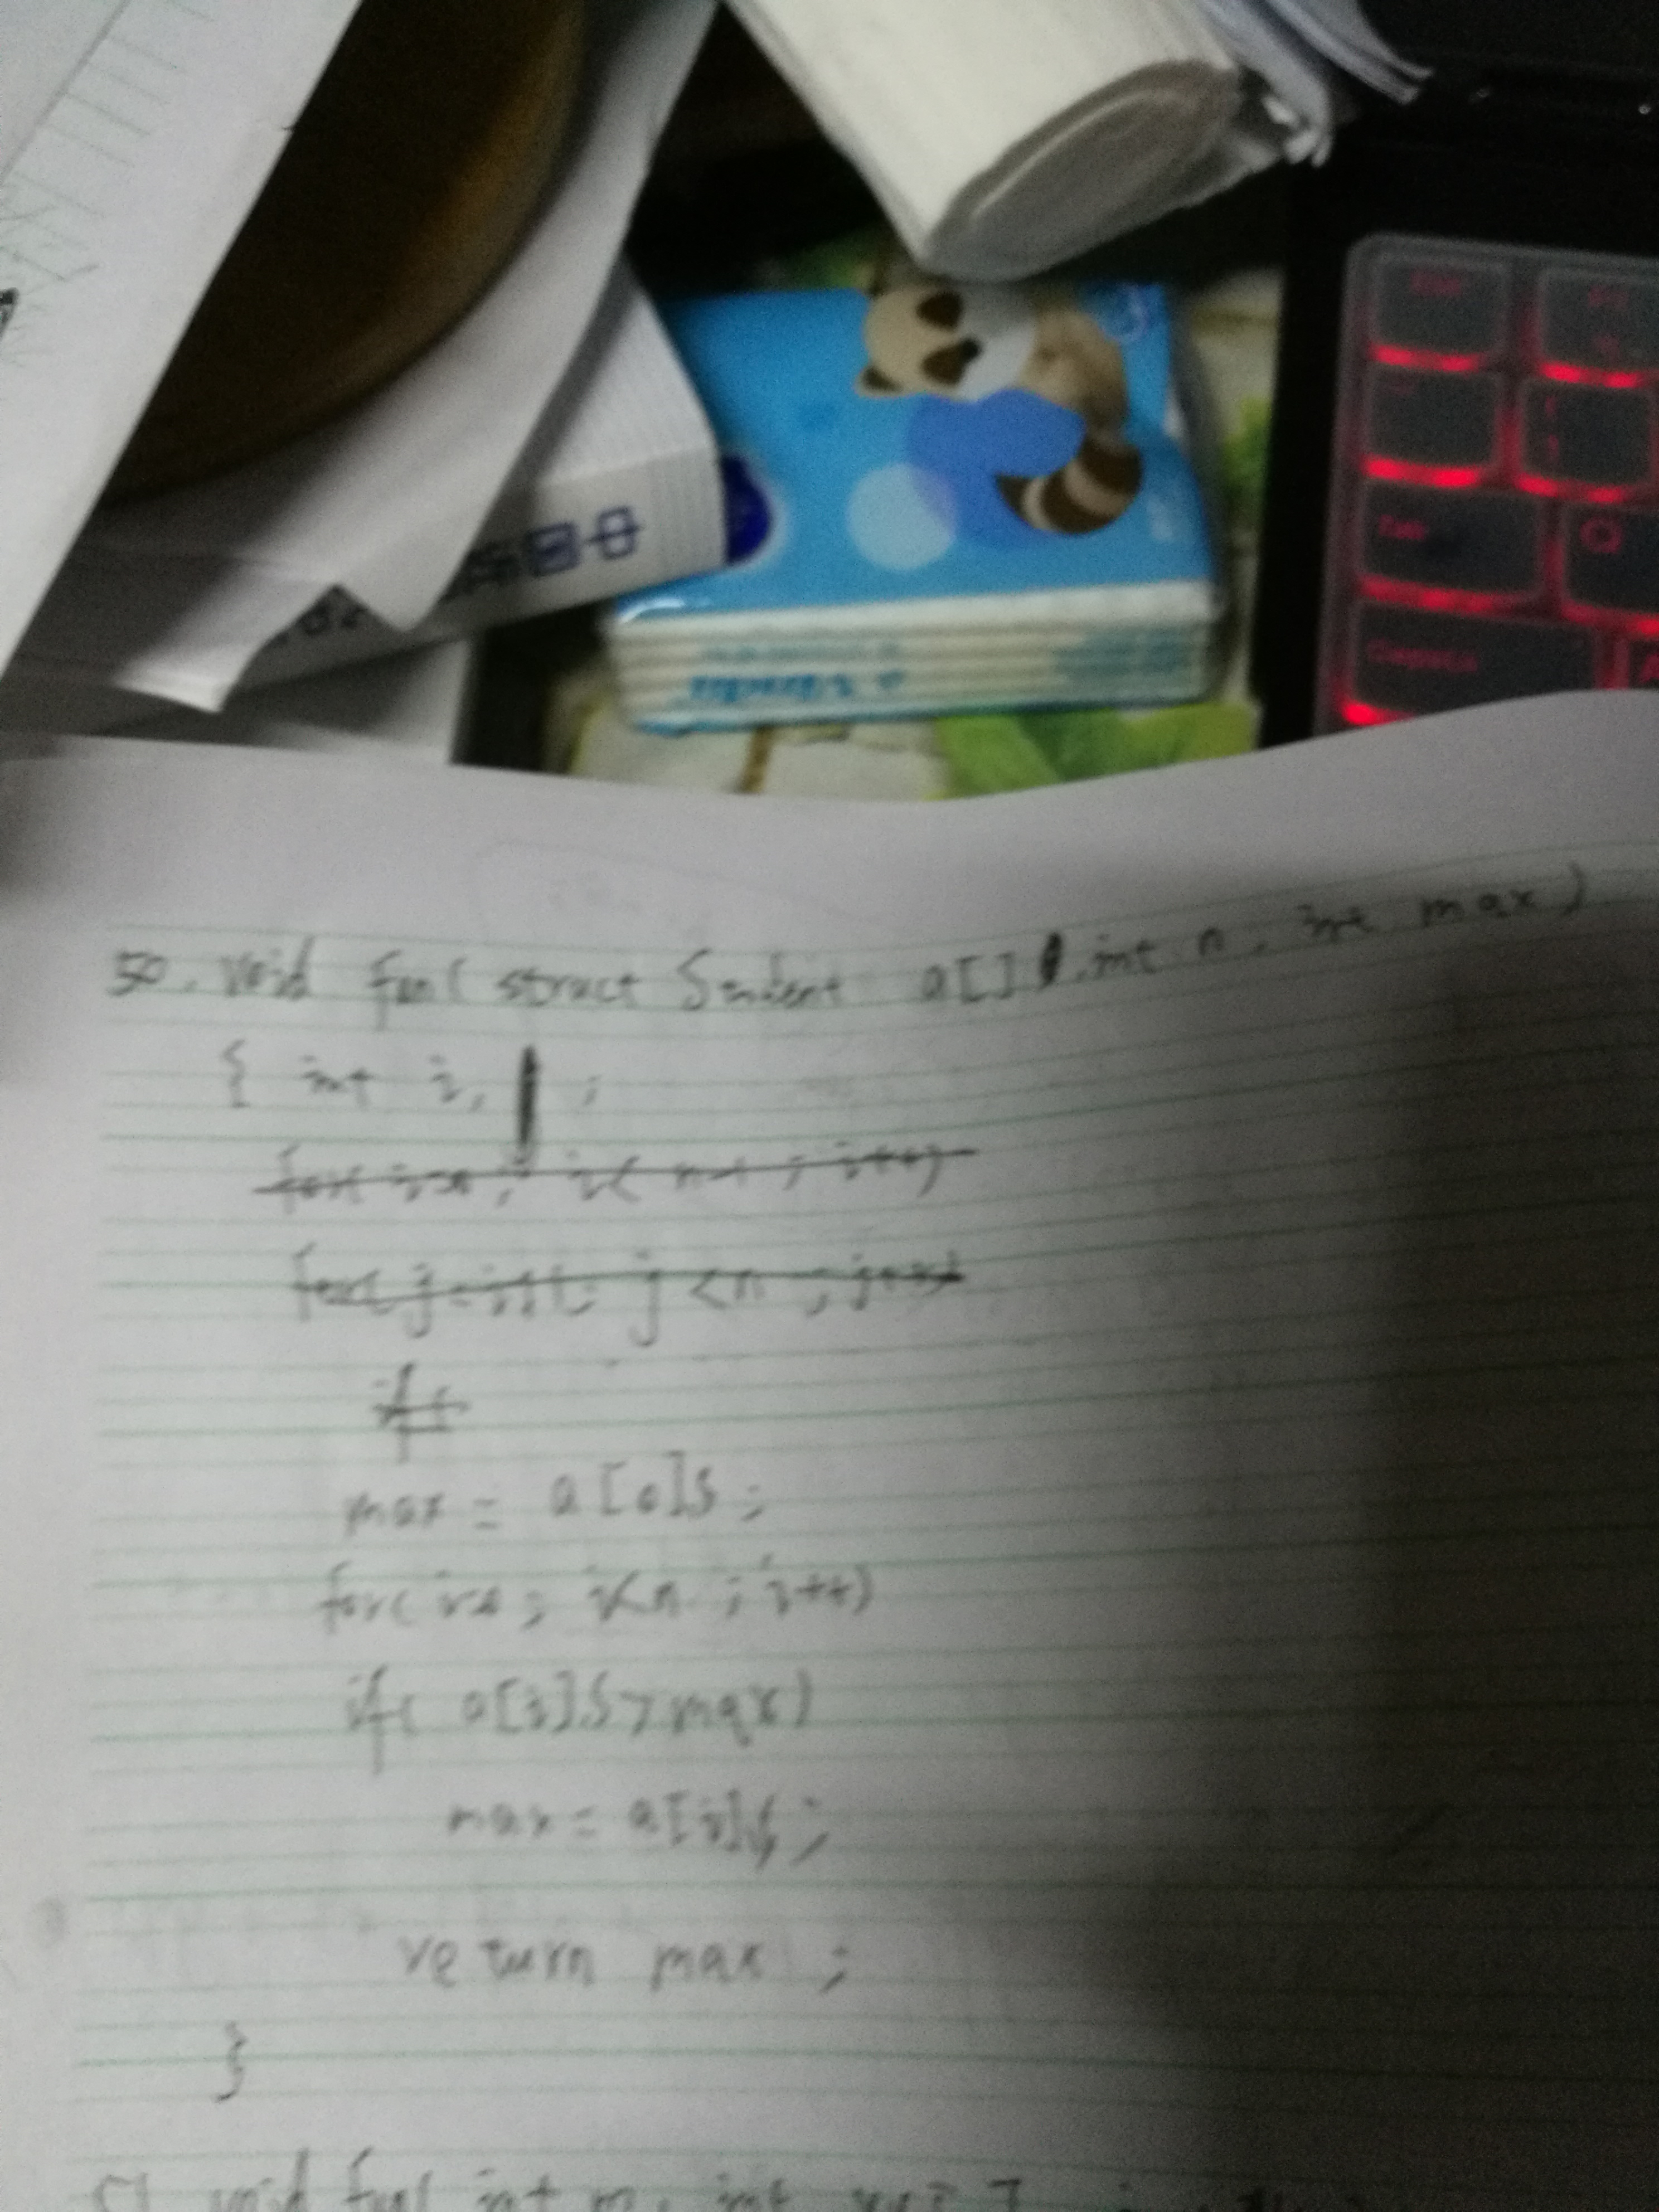 Tab
Q
Caps
A
50. void fun( struct Student a[], int n, int max)
{ int i, ;
for( ; i< n-1 ; i++)
for( j=i+1; j <n ; j++)
if(
max = a[0].s;
for( ; i<n ; i++)
if( a[i].s>max)
max = a[i].s;
return max ;
}
51 void fun( int m, int